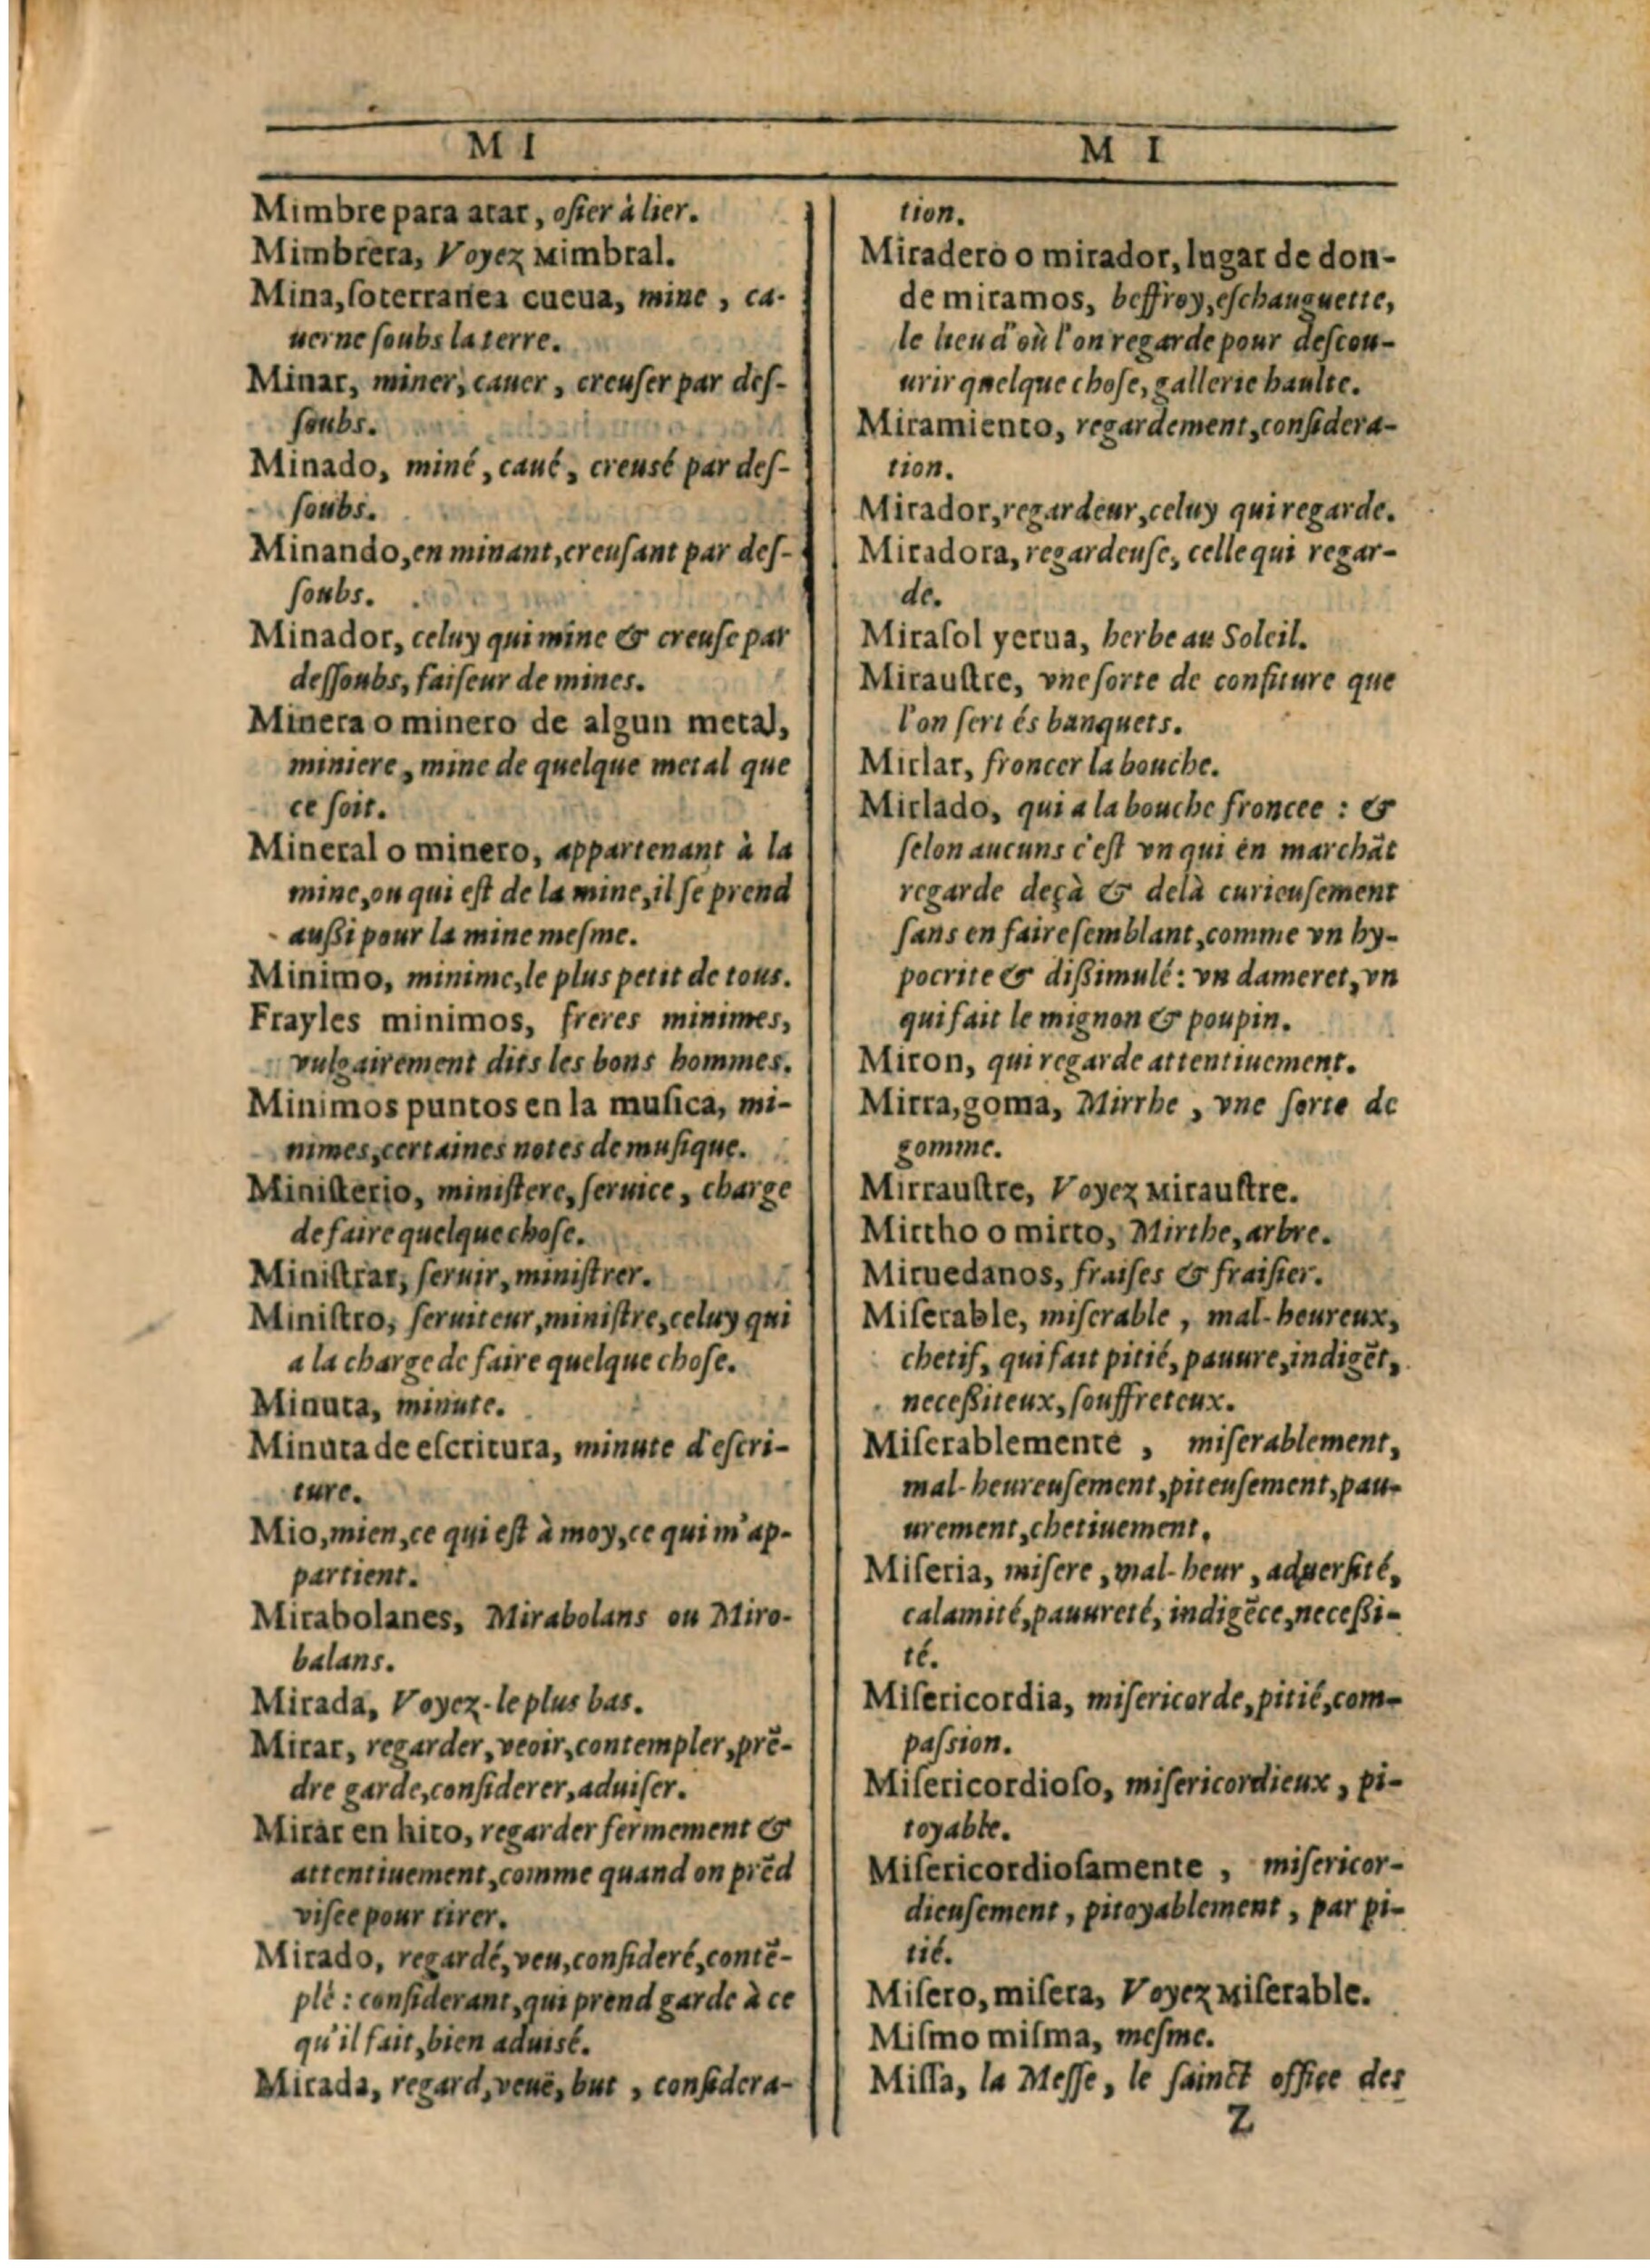 M I
Mimbre para atar, oſier à lier.
Mimbrera, Voyez Mimbral.
Mina, ſoterranea cueua, mine, ca-
uerne ſoubs la terre.
Minar, miner, cauer, creuſer par deſ-
ſoubs.
Minado, miné, caué, creuſé par deſ-
ſoubs.
Minando, en minant, creuſant par deſ-
ſoubs.
Minador, celuy qui mine & creuſe par
deſſoubs, faiſeur de mines.
Minera o minero de algun metal,
miniere, mine de quelque metal que
ce ſoit.
Mineral o minero, appartenant à la
mine, ou qui eſt de la mine, il ſe prend
außi pour la mine meſme.
Minimo, minime, le plus petit de tous.
Frayles minimos, freres minimes,
vulgairement dits les bons hommes.
Minimos puntos en la muſica, mi-
nimes, certaines notes de muſique.
Miniſterio, miniſtere, ſeruice, charge
de faire quelque choſe.
Miniſtrar, ſeruir, miniſtrer.
Miniſtro, ſeruiteur, miniſtre, celuy qui
a la charge de faire quelque choſe.
Minuta, minute.
Minuta de eſcritura, minute d'eſcri-
ture.
Mio, mien, ce qui eſt à moy, ce qui m'ap-
partient.
Mirabolanes, Mirabolans ou Miro-
balans.
Mirada, Voyez-le plus bas.
Mirar, regarder, veoir, contempler, prē-
dre garde, conſiderer, aduiſer.
Mirar en hito, regarder fermement &
attentiuement, comme quand on prēd
viſee pour tirer.
Mirado, regardé, veu, conſideré, contē-
plé : conſiderant, qui prend garde à ce
qu'il fait, bien aduisé.
Mirada, regard, veuë, but, conſidera-
M I
tion.
Miradero o mirador, lugar de don-
de miramos, beffroy, eſchauguette,
le lieu d'où l'on regarde pour deſcou-
urir quelque choſe, gallerie haulte.
Miramiento, regardement, conſidera-
tion.
Mirador, regardeur, celuy qui regarde.
Miradora, regardeuſe, celle qui regar-
de.
Miraſol yerua, herbe au Soleil.
Mirauſtre, vne ſorte de confiture que
l'on ſert és banquets.
Mirlar, froncer la bouche.
Mirlado, qui a la bouche froncee : &
ſelon aucuns c'eſt vn qui en marchāt
regarde deçà & delà curieuſement
ſans en faire ſemblant, comme vn hy-
pocrite & dißimulé : vn dameret, vn
qui fait le mignon & poupin.
Miron, qui regarde attentiuement.
Mirra, goma, Mirrhe, vne ſorte de
gomme.
Mirrauſtre, Voyez Mirauſtre.
Mirtho o mirto, Mirthe, arbre.
Miruedanos, fraiſes & fraiſier.
Miſerable, miſerable, mal-heureux,
chetif, qui fait pitié, pauure, indigēt,
neceßiteux, ſouffreteux.
Miſerablemente, miſerablement,
mal-heureuſement, piteuſement, pau-
urement, chetiuement.
Miſeria, miſere, mal-heur, aduerſité,
calamité, pauureté, indigēce, neceßi-
té.
Miſericordia, miſericorde, pitié, com-
paſsion.
Miſericordioſo, miſericordieux, pi-
toyable.
Miſericordioſamente, miſericor-
dieuſement, pitoyablement, par pi-
tié.
Miſero, miſera, Voyez Miſerable.
Miſmo miſma, meſme.
Miſſa, la Meſſe, le ſainct office des
Z